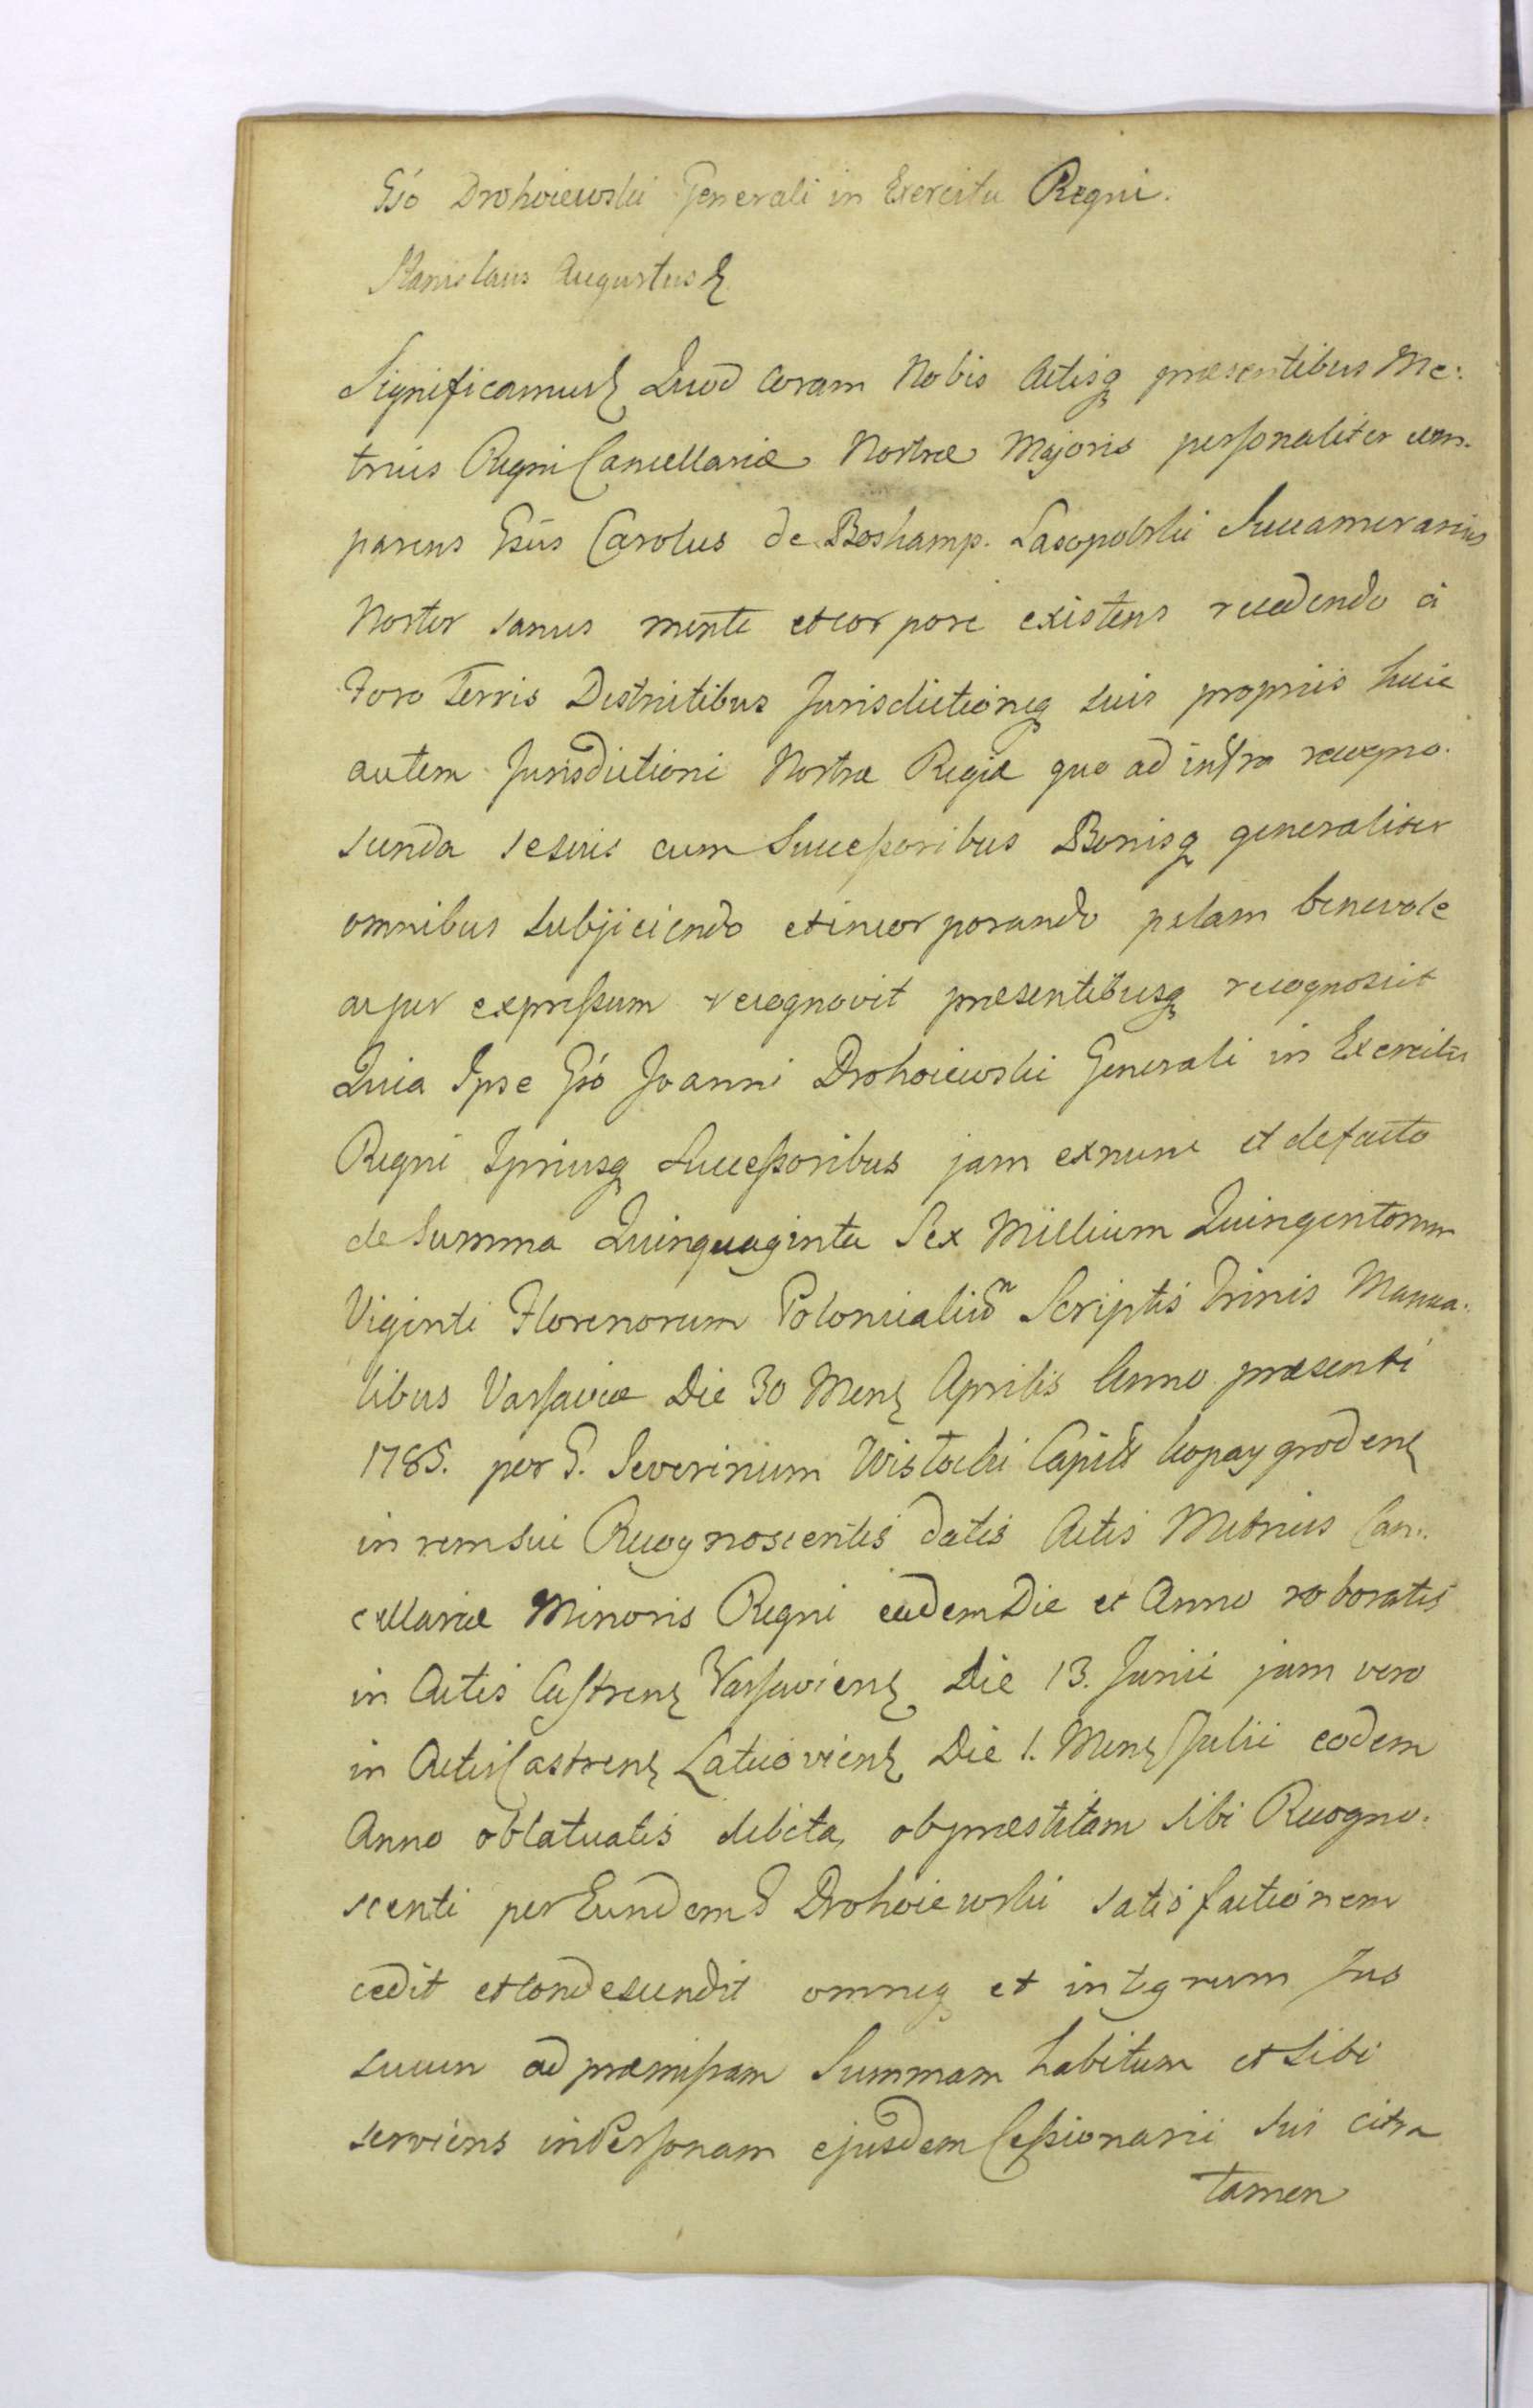 Gsó Drohoiewski Generali in Exercitu Regni.
Stanislaus Augustus &
Significamus & Quod Coram Nobis Actisq presentibus Me:
tricis Regni Cancellariæ Nostræ Majoris personaliter com:
parens Gsus Carolus de Boskamp. Lasopolski Succamerarius
Noster sanus mente et corpore existens recedendo à
Foro Terris Districtibus Jurisdictioneq suis propriis huic
autem Jurisdictioni Nostræ Regiæ quo ad infra recogno:
scenda se suis cum Successoribus Bonisq generaliter
omnibus subjiciendo et incorporando palam benevole
ac per expressum recognovit præsentibusq recognoscit
Quia Ipse Gsó Joanni Drohoiewski Generali in Exercitu
Regni Ipsiusq Successoribus jam exnunc et defacto
de Summa Quinquaginta Sex Millium Quingentorum
Viginti Florenorum Polonicaliū Scriptis Trinis Manua:
libus Varsaviæ Die 30 Mens Aprilis Anno præsenti
1785. per G. Severinum Wistocki Capits kopaygrodens
in rem sui Recognoscentis datis Actis Metrices Can:
cellariæ Minoris Regni eadem Die et Anno roboratis
in Actis Castrens Varsaviens Die 13. Junii jam vero
in Actis Castrens Latioviens Die 1. Mens Julii eodem
Anno oblatuatis debita, ob præstitam sibi Recogno:
scenti per Eundem G Drohoiewski satisfactionem
cedit et condescendit omneq et integrum Jus
suum ad præmissam Summam habitum et sibi
serviens in Personam ejusdem Cessionarii sui citra
tamen